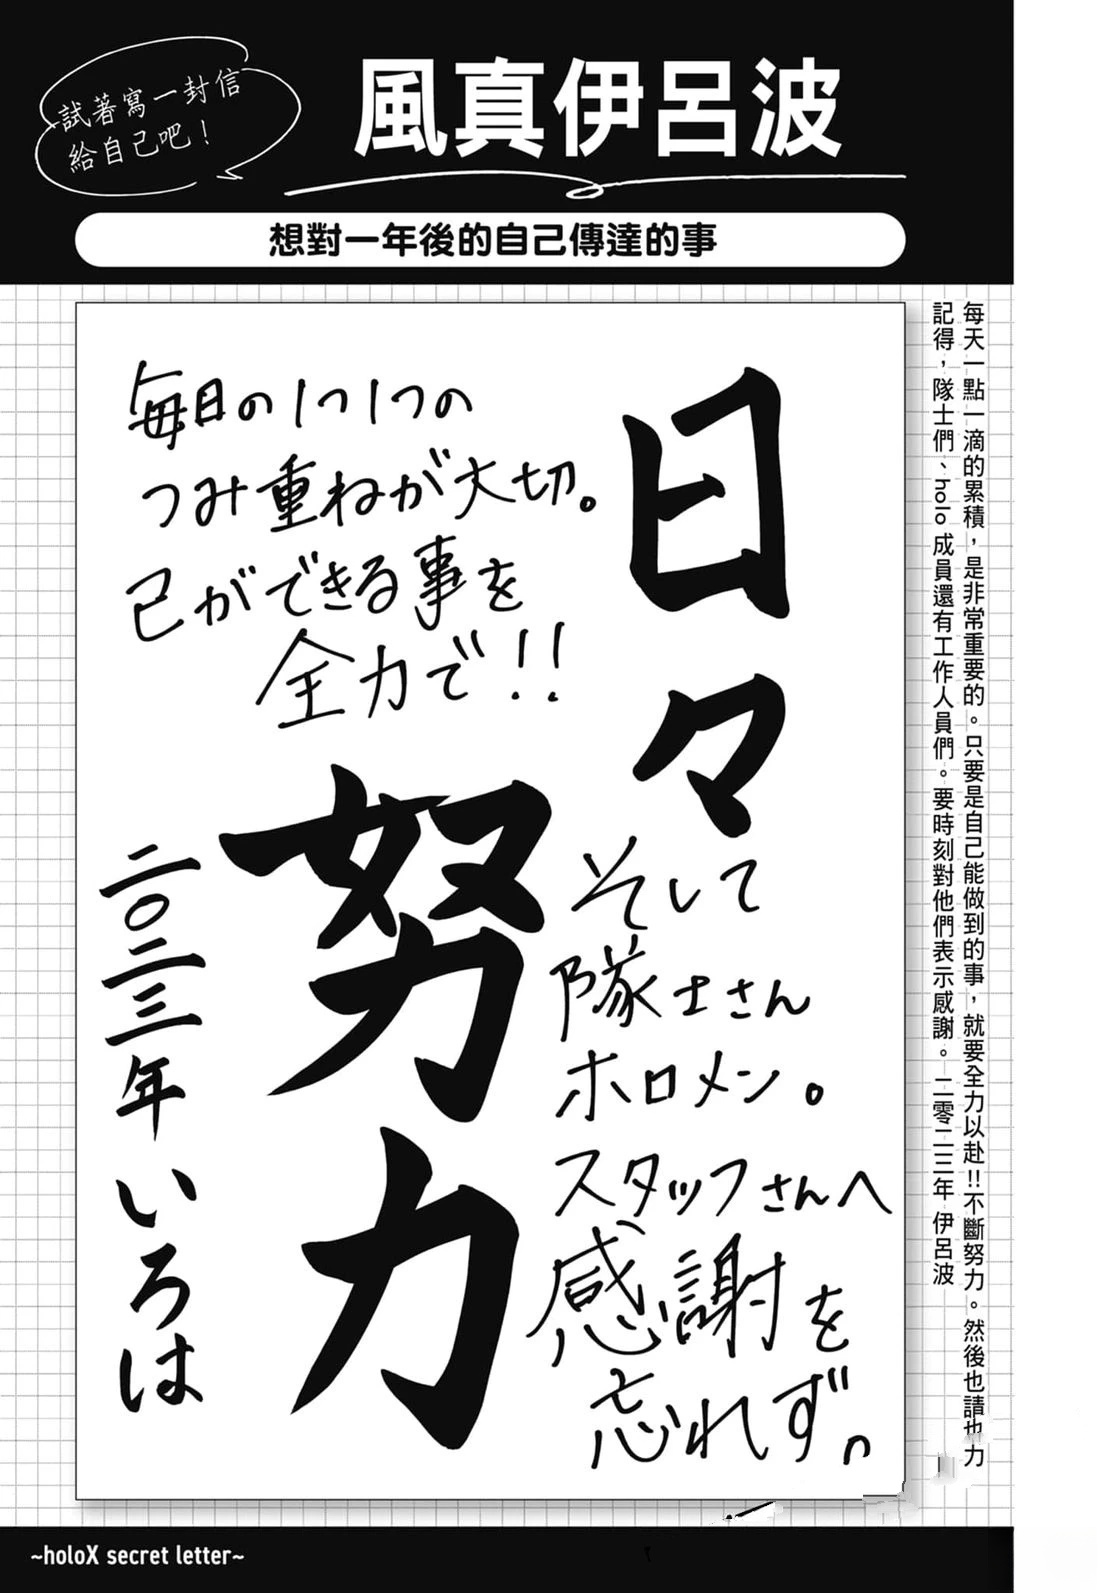 試著寫一封信
給自己吧！
風真伊呂波
想對一年後的自己傳達的事
日々
努力
毎日の1つ1つの
つみ重ねが大切。
己ができる事を
全力で!!
そして
隊士さん
ホロメン。
スタッフさんへ
感謝を
忘れず。
二〇二三年 いろは
每天一點一滴的累積，是非常重要的。只要是自己能做到的事，就要全力以赴!!不斷努力。然後也請
記得，隊士們、holo成員還有工作人員們。要時刻對他們表示感謝。 二零二三年 伊呂波
~holoX secret letter~